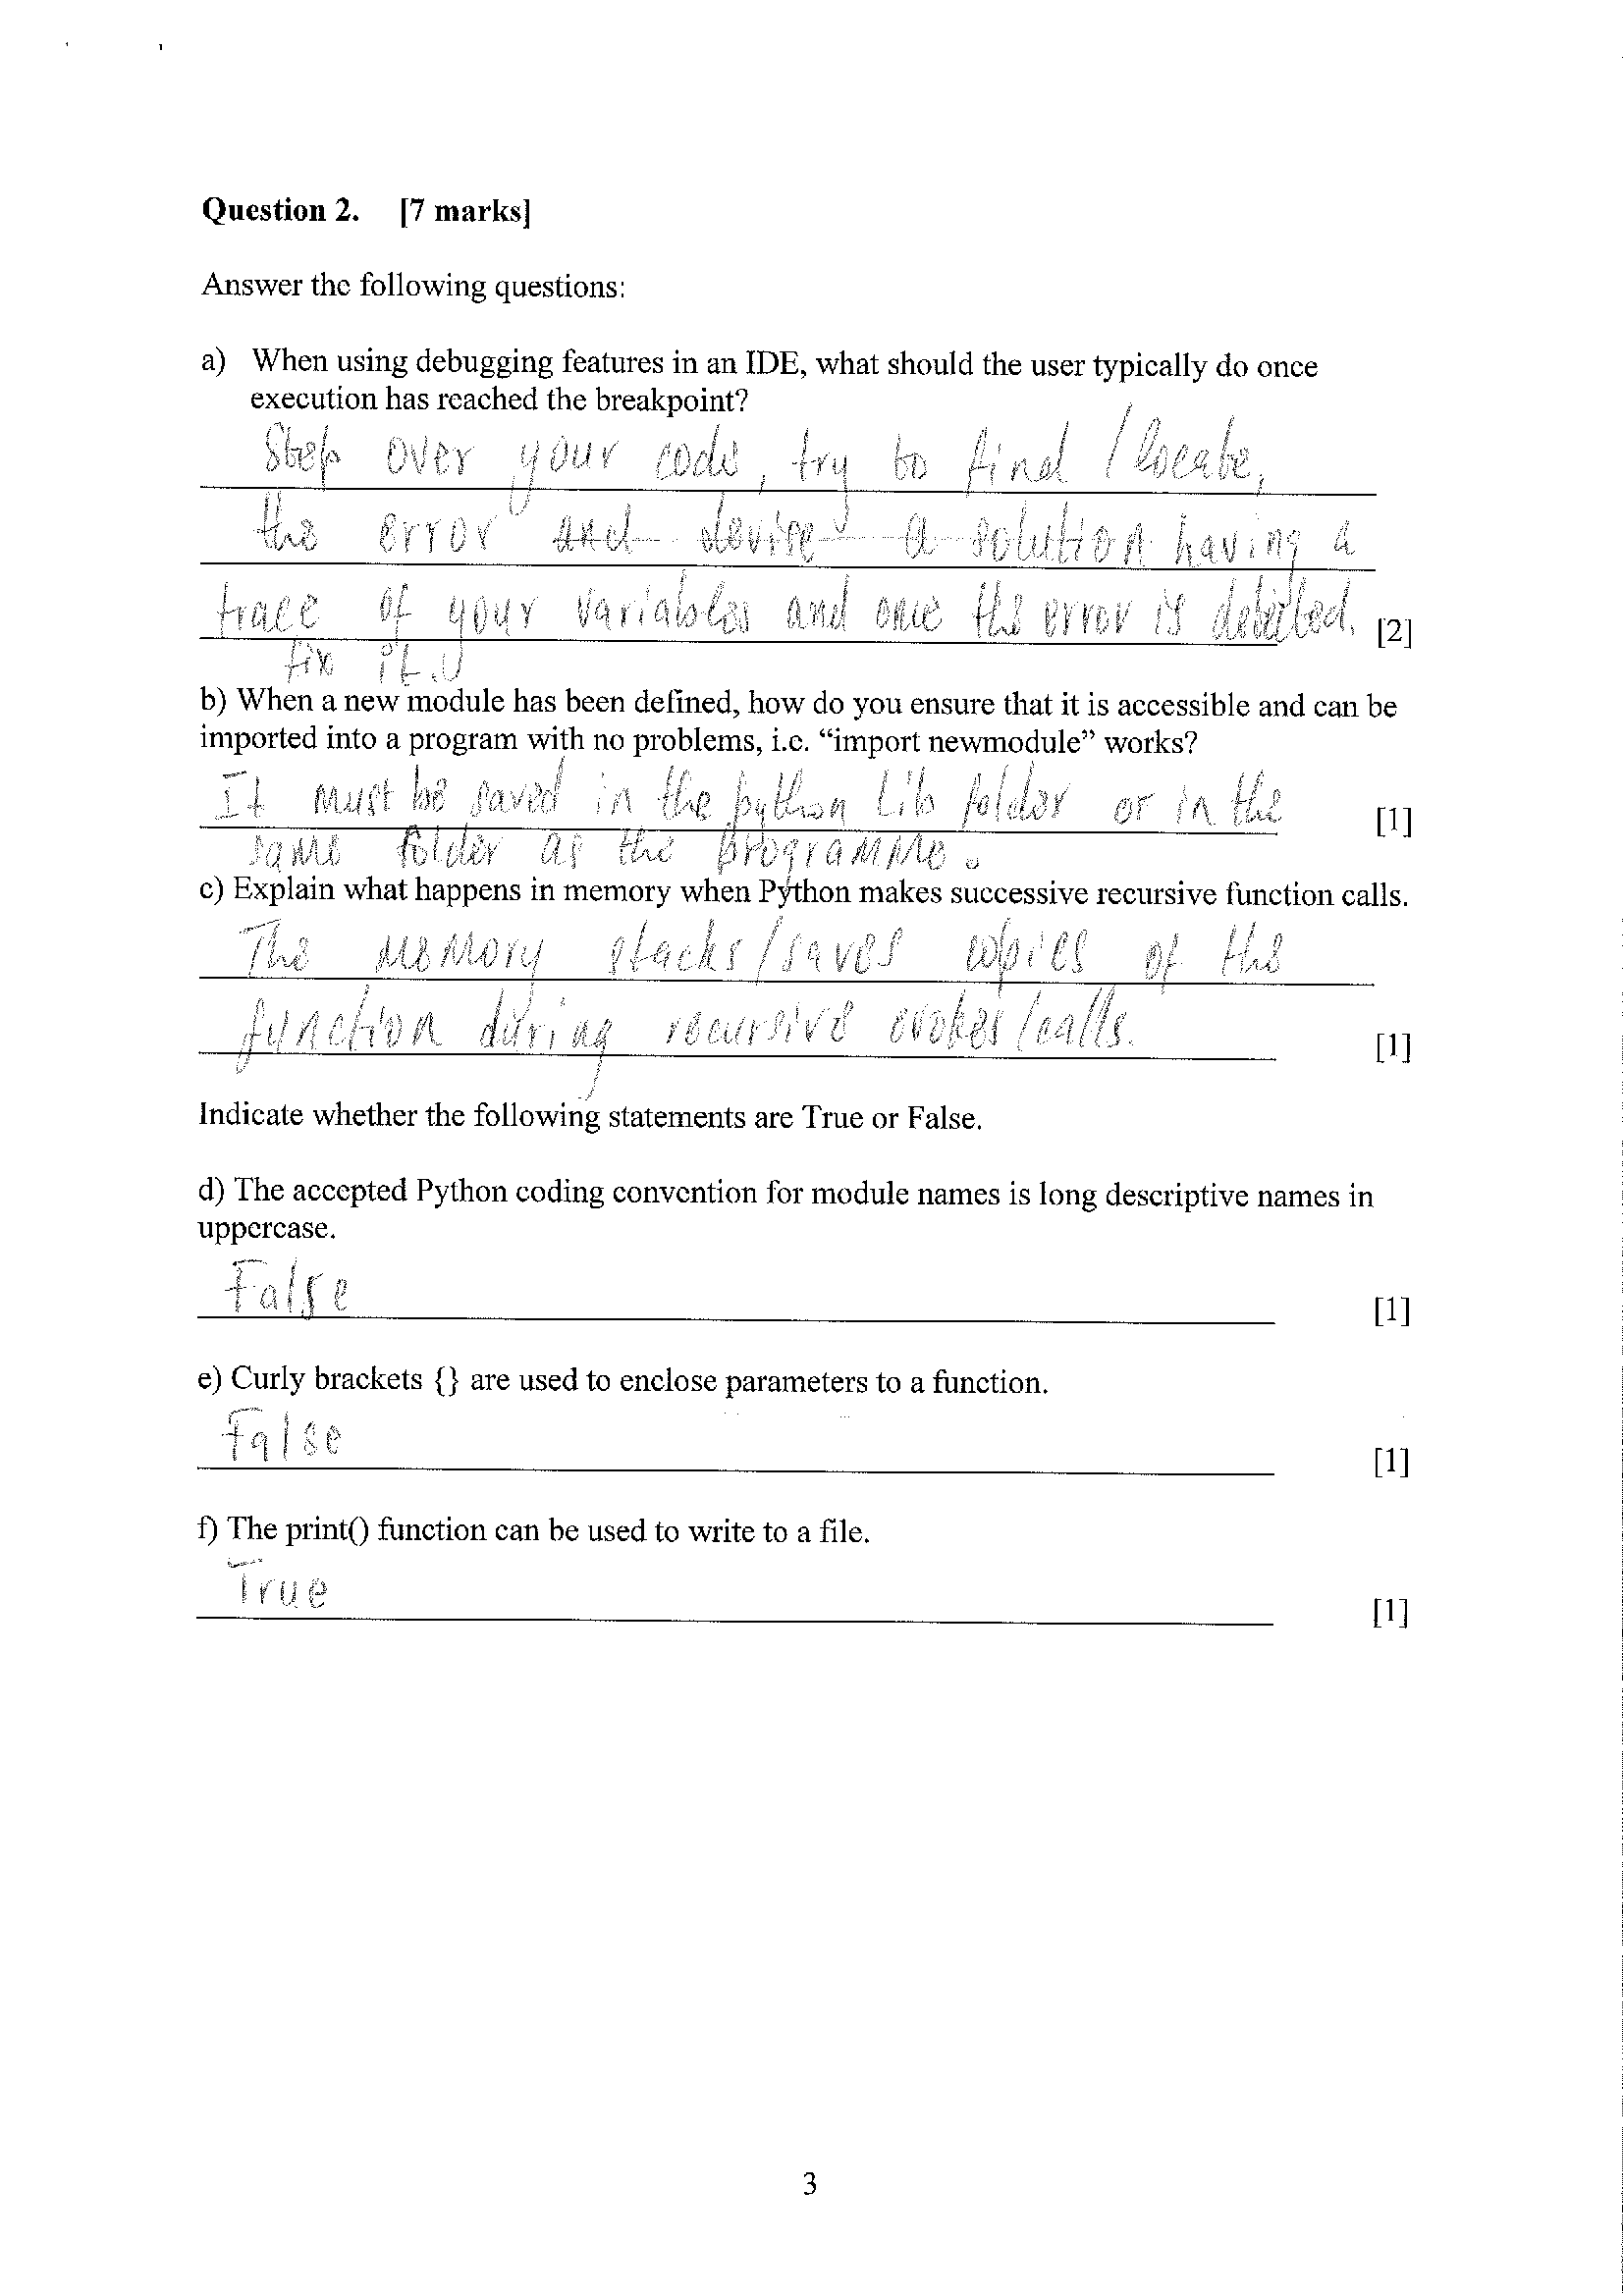 Question 2. [7 marks]
Answer the following questions:
a) When using debugging features in an IDE, what should the user typically do once
execution has reached the breakpoint?
Step over your code, try to find / locate,
the error and devise a solution having a
trace of your variables and once the error is detected.
[2]
fix it.
b) When a new module has been defined, how do you ensure that it is accessible and can be
imported into a program with no problems, i.e. “import newmodule” works?
It must be saved in the python Lib folder or in the
[1]
same folder as the programme.
c) Explain what happens in memory when Python makes successive recursive function calls.
The memory stacks/saves copies of the
function during recursive evokes/calls.
[1]
Indicate whether the following statements are True or False.
d) The accepted Python coding convention for module names is long descriptive names in
uppercase.
False
[1]
e) Curly brackets {} are used to enclose parameters to a function.
False
[1]
f) The print() function can be used to write to a file.
True
[1]
3